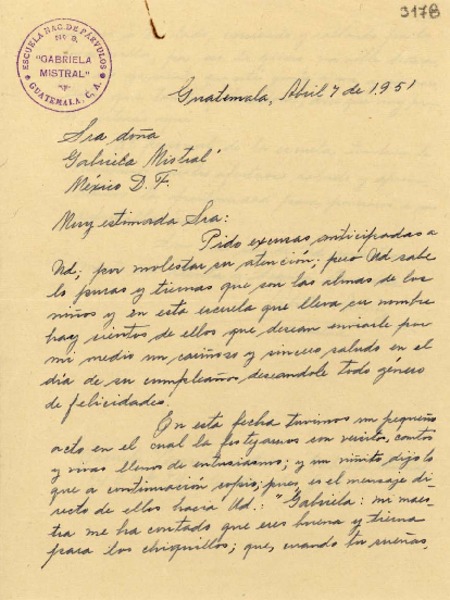 3178
ESCUELA NAC. DE PÁRVULOS
No 3.
"GABRIELA
MISTRAL"
GUATEMALA, C. A.
Guatemala, Abril 7 de 1951
Sra doña
Gabriela Mistral
México D. F.
Muy estimada Sra:
Pido excusas anticipadas a
Ud; por molestar su atención; pero Ud sabe
lo puras y tiernas que son las almas de los
niños y en esta escuela que lleva su nombre
hay sientos de ellos que desean enviarle por
mi medio un cariñoso y sincero saludo en el
día de su cumpleaños deseandole todo género
de felicidades.
En esta fecha tuvimos un pequeño
acto en el cual la festejamos con versitos, cantos
y vivas llenos de entusiasmo; y un niñito dijo lo
que a continuación copio, pues, es el mensaje di-
recto de ellos hacia Ud.: "Gabriela: mi maes-
tra me ha contado que eres buena y tierna
para los chiquillos; que, cuando tu sueñas,